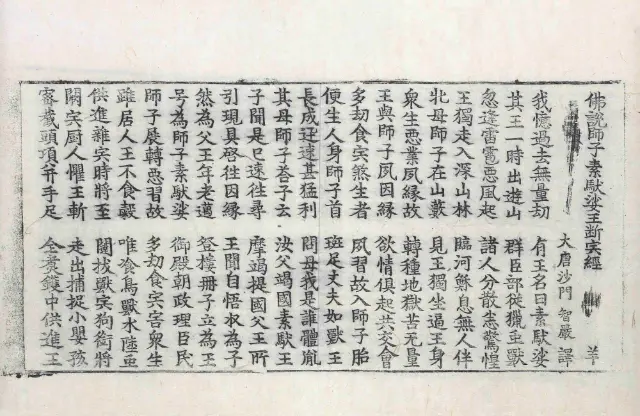 佛說師子素馱娑王斷宍經 羊
大唐沙門 智嚴 譯
我憶過去無量劫 有王名曰素馱娑
其王一時出遊山 群臣部從獵虫獸
忽逢雷電惡風起 諸人分散悉驚惶
王獨走入深山林 臨河穌息無人伴
牝母師子在山藪 見王獨坐逼王身
衆生惡業夙緣故 轉種地獄苦無量
王與師子夙因緣 欲情俱起共交會
多劫食宍煞生者 夙習故入師子胎
便生人身師子首 班足丈夫如獸王
長成迅速甚猛利 問母我是誰體胤
其母師子荅子云 汝父竭國素馱王
子聞是已速往尋 摩竭提國父王所
引現具啓往因緣 王聞自悟収為子
然為父王年老邁 登樓冊子立為王
号為師子素馱娑 御殿朝政理臣民
師子展轉惡習故 多劫食宍害衆生
雖居人王不食穀 唯飡鳥獸水陸虫
供進雜宍時將至 闇拔獸宍狗銜將
闕宍厨人懼王斬 走出捕捉小嬰孩
密截頭頂并手足 全煑鑊中供進王